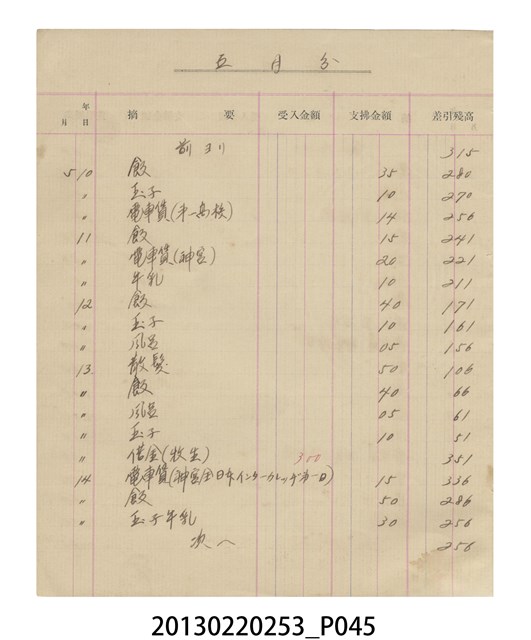 五月分
年 月 日 摘 要 受入金額 支拂金額 差引殘高
前ヨリ 315
5 10 飯 35 280
〃 玉子 10 270
〃 電車賃(第一高校) 14 256
11 飯 15 241
〃 電車賃(神宮) 20 221
〃 牛乳 10 211
12 飯 40 171
〃 玉子 10 161
〃 風呂 05 156
13 散髪 50 106
〃 飯 40 66
〃 風呂 05 61
〃 玉子 10 51
〃 借金(牧生) 300 351
14 電車賃(神宮全日本インターカレッヂ第一日) 15 336
〃 飯 50 286
〃 玉子牛乳 30 256
次へ 256
20130220253_P045